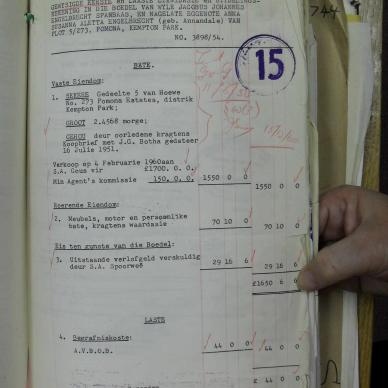 GEWYSIGDE EERSTE EN LAASTE LIKWIDASIE EN UITDELINGS-
REKENING IN DIE BOEDEL VAN WYLE JACOBUS JOHANNES
ENGELBRECHT SPANBAAS, EN NAGELATE EGGENOTE ANNA
SUSANNA ALETTA ENGELBRECHT (geb. Annandale) VAN
PLOT 5/273, POMONA, KEMPTON PARK.
NO. 3898/54.
BATE.
15
Vaste Eiendom:
1. SEKERE Gedeelte 5 van Hoewe
No. 273 Pomona Estates, distrik
Kempton Park;
GROOT 2.4568 morge;
GEHOU deur oorledene kragtens
Koopbrief met J.G. Botha gedateer
16 Julie 1951.
Verkoop op 4 Februarie 1960aan
S.A. Geus vir £1700. 0. 0.
Min Agent's kommissie 150. 0. 0. 1550 0 0
1550 0 0
Roerende Eiendom:
2. Meubels, motor en persoonlike
bate, kragtens waardasie 70 10 0 70 10 0
Eis ten gunste van die Boedel:
3. Uitstaande verlofgeld verskuldig
deur S.A. Spoorweë 29 16 6 29 16 6
£1650 6 6
LASTE
4. Begrafniskoste:
A.V.B.O.B. 44 0 0 44 0 0
£ 44 0 0